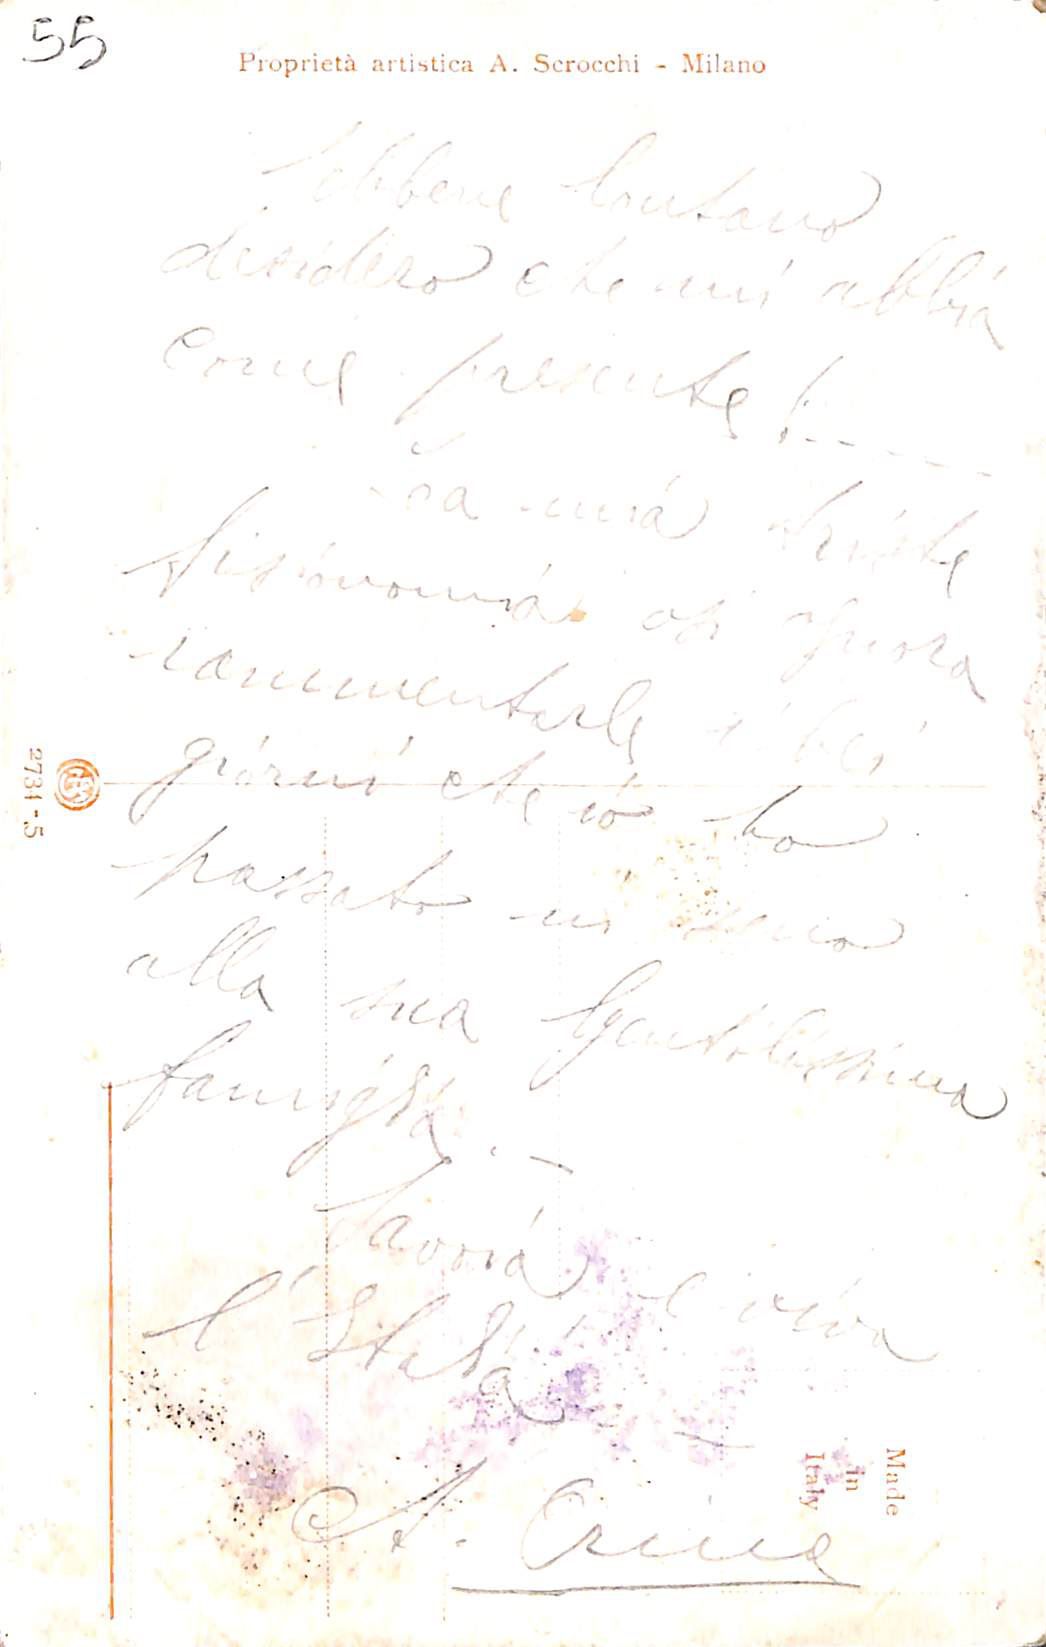 55
Proprietà artistica A. Scrocchi - Milano
Sebbene lontano
desidero che mi abbia
come presente!------
La mia triste
fisionomia
rammentarle i bei
giorni che io ho
passato in seno
alla sua Gentilissima
famiglia.—
Savoia e viva
l'Italia —
A.
2731-5
Made
in
Italy